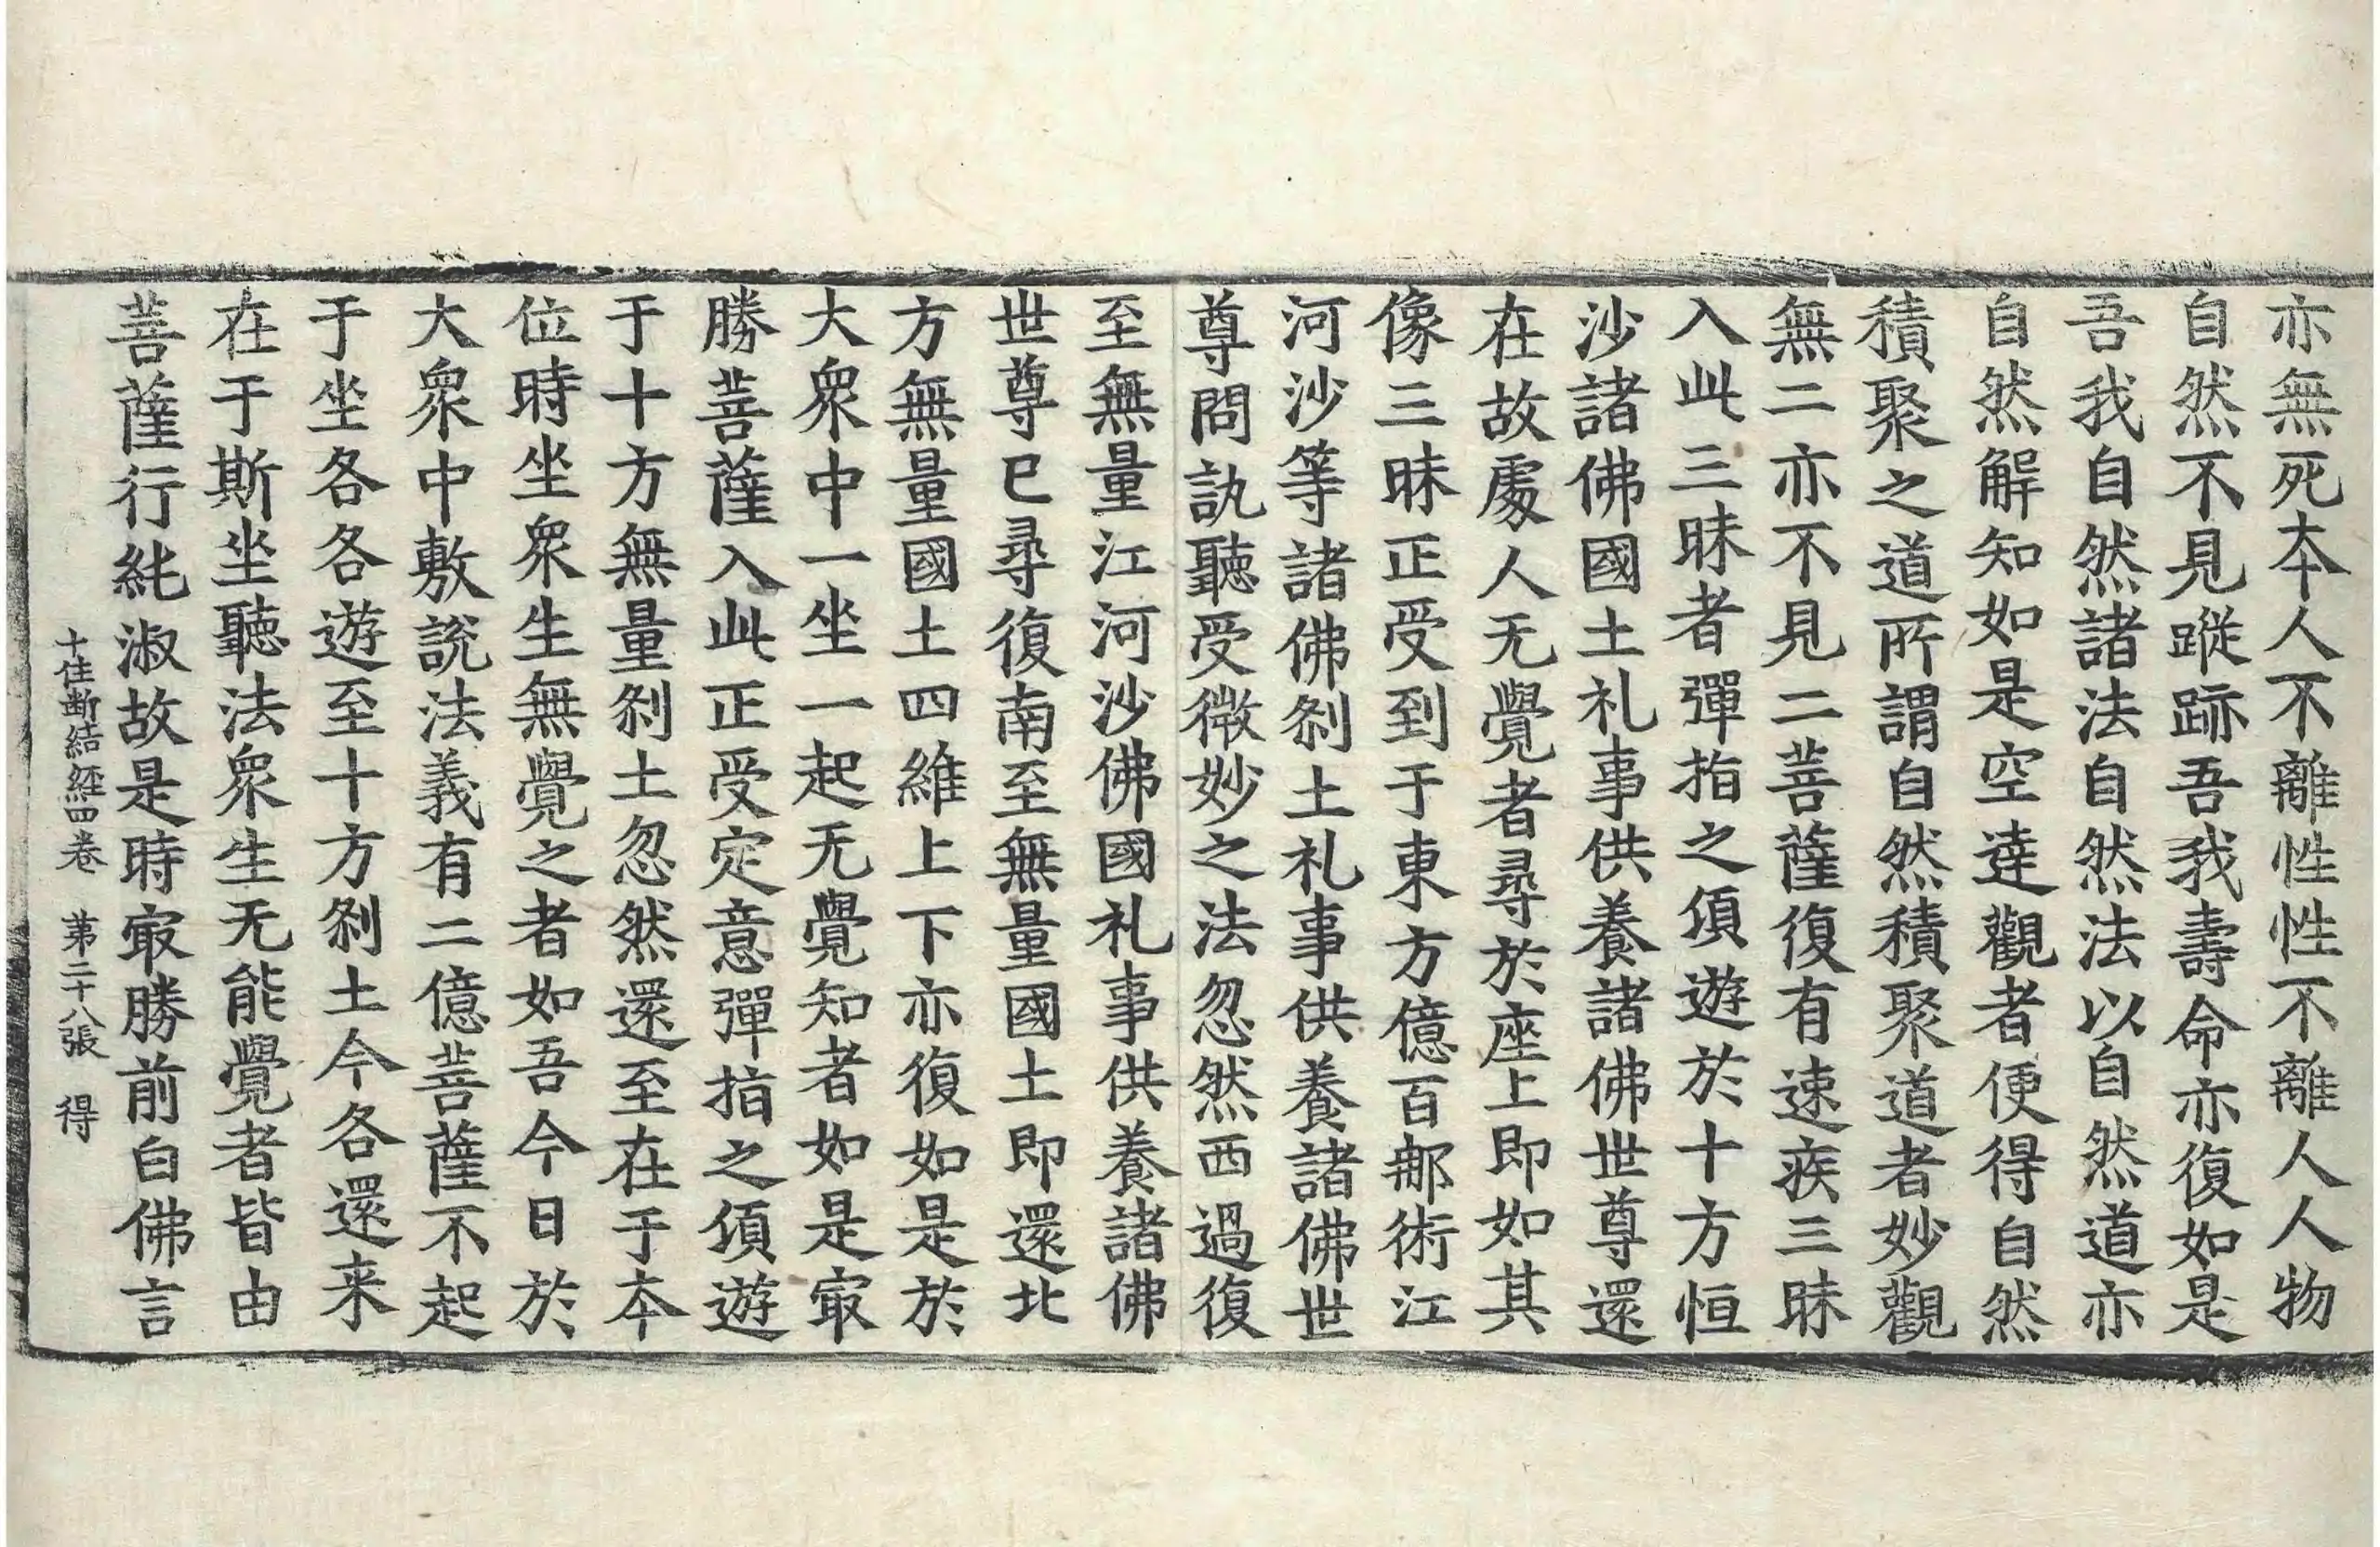 亦無死本人不離性性不離人人物
自然不見蹤跡吾我壽命亦復如是
吾我自然諸法自然法以自然道亦
自然解知如是空達觀者便得自然
積聚之道所謂自然積聚道者妙觀
無二亦不見二菩薩復有速疾三昧
入此三昧者彈指之頃遊於十方恒
沙諸佛國土礼事供養諸佛世尊還
在故處人无覺者尋於座上即如其
像三昧正受到于東方億百那術江
河沙等諸佛刹土礼事供養諸佛世
尊問訊聽受微妙之法忽然西過復
至無量江河沙佛國礼事供養諸佛
世尊已尋復南至無量國土即還北
方無量國土四維上下亦復如是於
大衆中一坐一起无覺知者如是㝡
勝菩薩入此正受定意彈指之頃遊
于十方無量刹土忽然還至在于本
位時坐衆生無覺之者如吾今日於
大衆中敷說法義有二億菩薩不起
于坐各各遊至十方刹土今各還来
在于斯坐聽法衆生无能覺者皆由
菩薩行純淑故是時㝡勝前白佛言
十住断結經四卷 苐二十八張 得